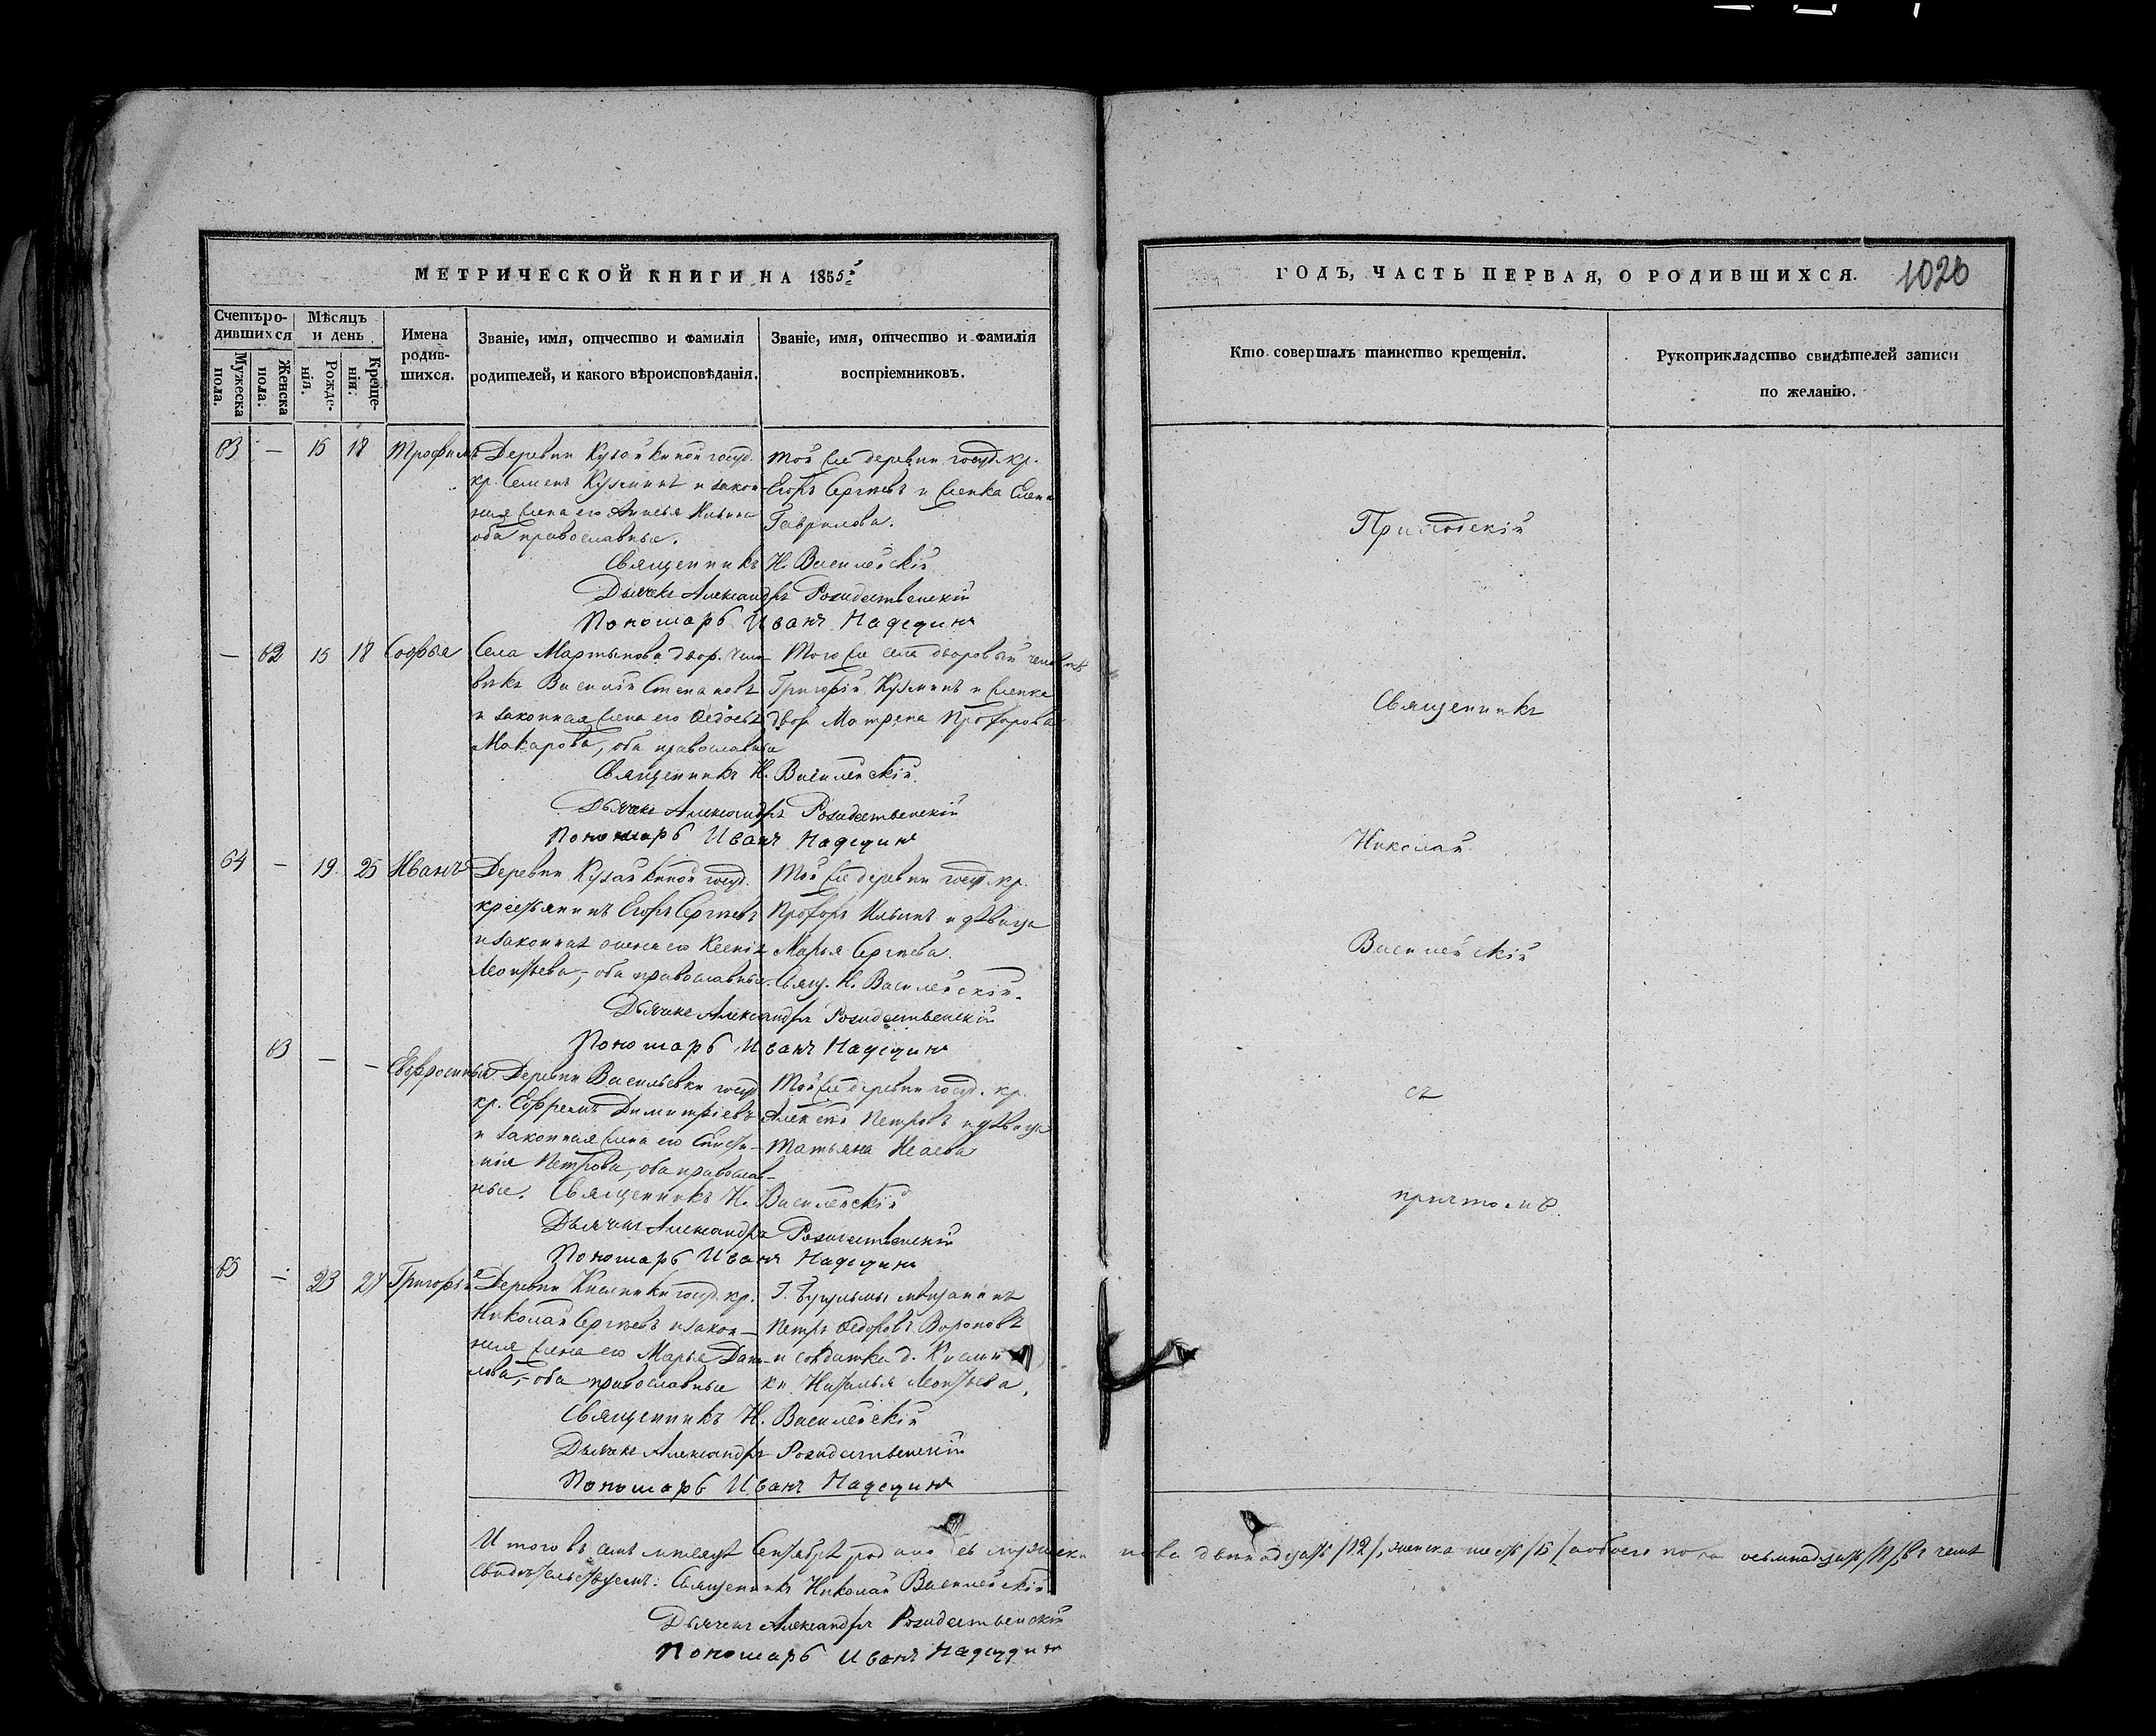 МЕТРИЧЕСКОЙ КНИГИ НА 1855
Счетъ родившихся
Мѣсяцъ и день
Имена родившихся.
Званіе, имя, отчество и фамилія родителей, и какого вѣроисповѣданія.
Званіе, имя, отчество и фамилія воспріемниковъ.
Мужеска пола.
Женска пола.
Рожденія.
Крещенія.
63 — 15 18 Трофимъ
Деревни Кузайкиной госуд.
кр. Семенъ Кузминъ и закон-
ная жена его Анисья Ильина
оба православные.
Той же деревни госуд. кр.
Егоръ Сергѣевъ и женка Елена
Гаврилова.
Священникъ Н. Василевскій
Дьячекъ Александръ Рождественскій
Пономарь Иванъ Надеждинъ
— 62 15 18 Софья
Села Мартынова двор. чело-
вѣкъ Василій Степановъ
и законная жена его Федосья
Макарова, оба православные
Того же села дворовый человѣкъ
Григорій Кузминъ и женка
двор. Матрена Прохорова
Священникъ Н. Василевскій.
Дьячекъ Александръ Рождественскій
Пономарь Иванъ Надеждинъ
64 — 19 25 Иванъ
Деревни Кузайкиной госуд.
крестьянинъ Егоръ Сергѣевъ
и законная жена его Ксенія
Леонтьева, оба православные.
Той же деревни госуд. кр.
Прохоръ Ильинъ и дѣвица
Марья Сергѣева.
Свящ. Н. Василевскій.
Дьячекъ Александръ Рождественскій
Пономарь Иванъ Надеждинъ
63 — — Евфросинья
Деревни Васильевки госуд
кр. Ефремъ Димитріевъ
и законная жена его
Петрова, оба православ-
ные.
Той же деревни госуд. кр.
Алексѣй Петровъ и дѣвица
Татьяна Исаева
Священникъ Н. Василевскій
Дьячекъ Александръ Рождественскій
Пономарь Иванъ Надеждинъ
65 — 23 27 Григорій
Деревни госуд. кр.
Николай Сергѣевъ и закон-
ная жена его Марья Дани-
лова, оба православные
Г. Бугульмы мѣщанинъ
Петръ Федоровъ Вороновъ
и солдатка д.
ки Наталья Леонтьева.
Священникъ Н. Василевскій
Дьячекъ Александръ Рождественскій
Пономарь Иванъ Надеждинъ
Итого въ семъ мѣсяцѣ Сентябрѣ родилось мужеска пола двѣнадцать /12/, женска шесть /6/ а обоего пола осьмнадцать /18/, въ чемъ
свидѣтельствуемъ: Священникъ Николай Василевскій
Дьячекъ Александръ Рождественскій
Пономарь Иванъ Надеждинъ
ГОДЪ, ЧАСТЬ ПЕРВАЯ, О РОДИВШИХСЯ.
1026
Кто совершалъ таинство крещенія.
Рукоприкладство свидѣтелей записи
по желанію.
Приходскій
Священникъ
Николай
Василевскій
съ
причтомъ.